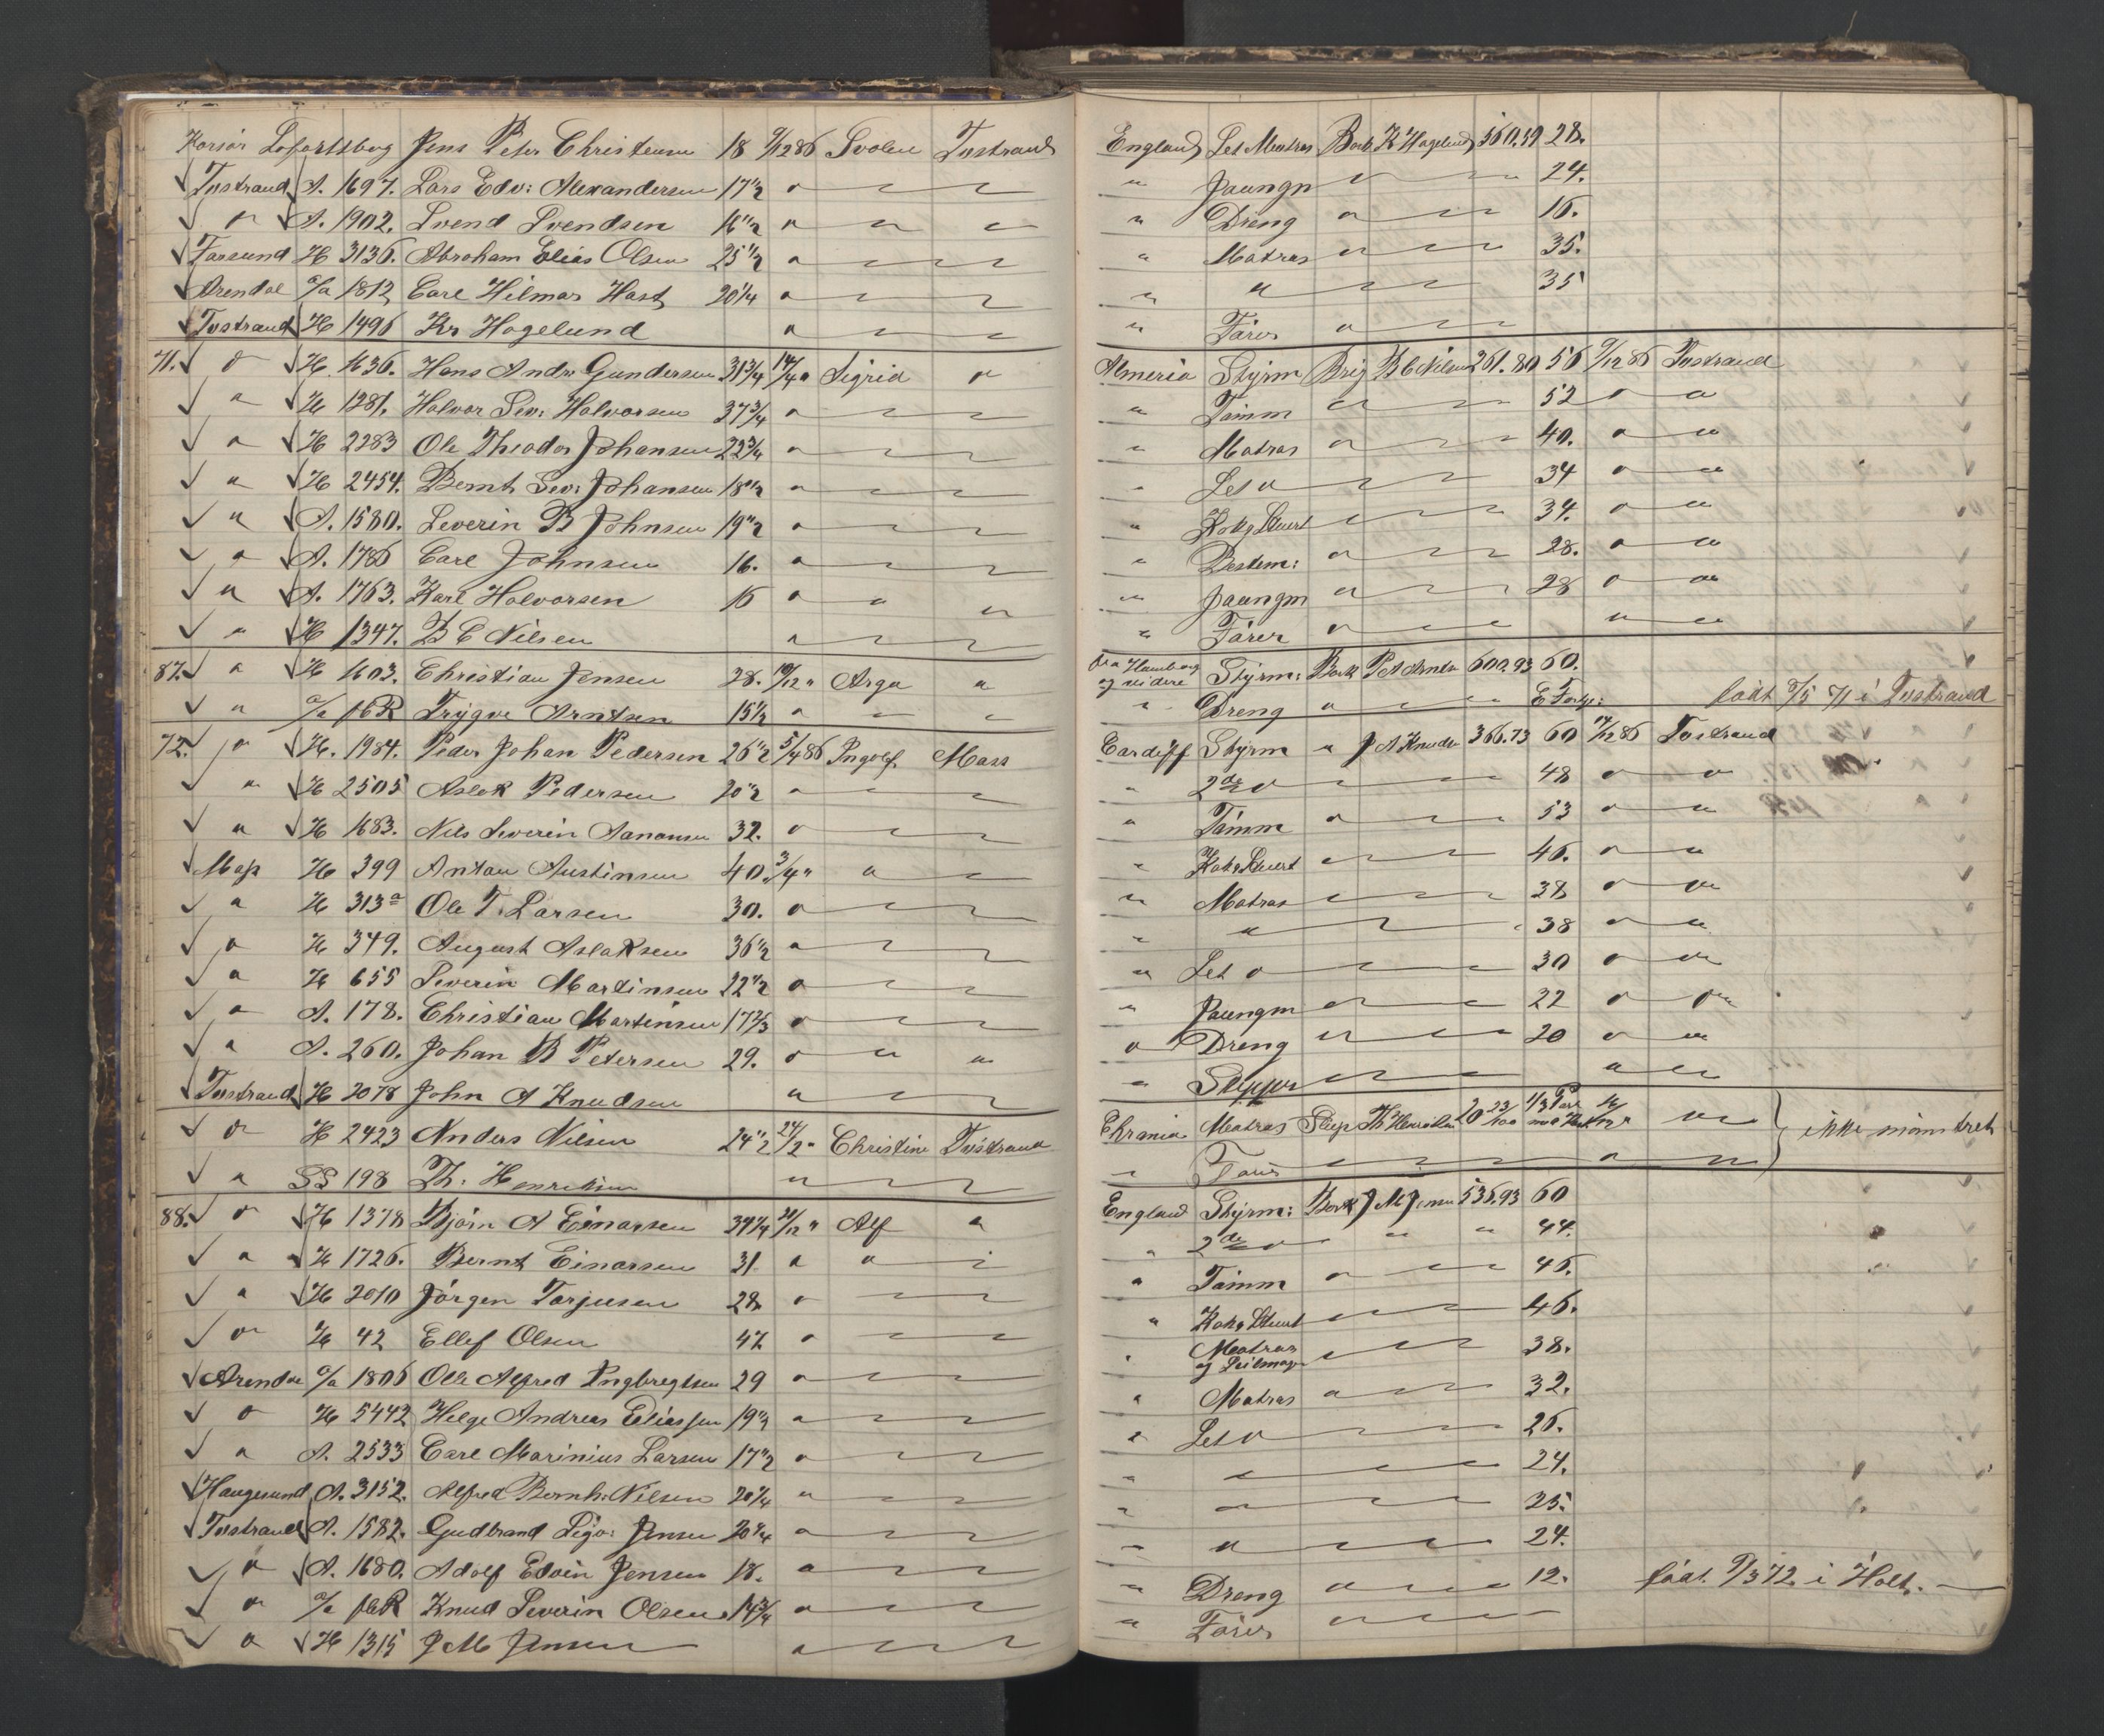 Korsør Søfartsbog Jens Peter Christensen 18 9/12 86 Svolen Tvestrand
Tvestrand A. 1697. Lars Edv: Alexandersen 17 1/2 " " "
" A. 1902. Svend Svendsen 16 1/2 " " "
Farsund H 3136. Abraham Elias Olsen 25 1/2 " " "
Arendal a/a 1812 Carl Hilmar Hast 20 1/4 " " "
Tvestrand H 1496 Kr Hagelund " " "
71. " H 1636. Hans Andr Gundersen 31 3/4 14/4 " Sigrid "
" H 1281. Halvor Sev: Halvorsen 37 3/4 " " "
" H 2283 Ole Theodor Johansen 22 3/4 " " "
" H 2454. Bernt Sev: Johansen 18 1/2 " " "
" A. 1580. Severin B Johnsen 19 1/2 " " "
" A. 1786 Carl Johnsen 16. " " "
" A. 1763. Karl Halvorsen 16 " " "
" H 1347. B C Nilsen " " "
87. " H 1603. Christian Jensen 28. 10/12 " Arga "
" a/a fbR Trygve Arntsen 15 1/2 " " "
72. " H. 1984. Peder Johan Pedersen 26 1/2 5/4 86 Ingolf Mass
" H 2505 Aslak Pedersen 20 1/2 " " "
" H 1683. Nils Severin Aanonsen 32. " " "
Mass H 399 Antau Austinsen 40. 3/4 " " "
" H 313a Ole T. Larsen 30. " " "
" H 349. August Aslaksen 36 1/2 " " "
" H 655 Severin Martinsen 22 1/2 " " "
" A. 178. Christian Martinsen 17 2/3 " " "
" A. 260. Johan B Petersen 29. " " "
Tvestrand H 2078 John A Knudsen " " "
" H 2423 Anders Nilsen 24 1/2 24/2 " Christine Tvestrand
" SS 198 Th: Henriksen " " "
88. " H 1378 Bjørn A Einarsen 34 1/4 21/12 " Alf "
" H 1726. Bernt Einarsen 31. " " "
" H 2010 Jørgen Torjusen 28. " " "
" H 42 Ellef Olsen 47 " " "
Arendal a/a 1806 Ole Alfred Ingbregtsen 29 " " "
" H 5442 Helge Andreas Eliassen 19 1/2 " " "
" A. 2533 Carl Marinius Larsen 17 1/2 " " "
Haugesund A. 3152. Alfred Bernh: Nilsen 20 1/4 " " "
Tvestrand A. 1582. Gudbrand Sigv: Jensen 20 1/4 " " "
" A. 1680. Adolf Edvin Jensen 18. " " "
" a/a fbR Knud Severin Olsen 14 3/4 " " "
" H 1315 J M Jensen " " "
England Let Matros Bark K Hagelund 560.59 28.
" Jaungm " " " 24.
" Dreng " " " 16.
" Matros " " " 35.
" " " " 35
" Fører " " "
Almeria Styrm Brig B C Nilsen 261.80 56 9/12 86 Tvestrand
" Tømm " " " 52 " "
" Matros " " " 40. " "
" Let " " " " 34 " "
" Kok og Stuert " " " 34. " "
" Bestm: " " " 28. " "
" Jaungm " " " 28 " "
" Fører " " " " "
fra Hamborg og videre Styrm: Bark P A Arntz 600.93 60.
" Dreng " " " E Forhyr: født 3/5 71 i Tvestrand
Cardiff Styrm " J A Knuds 366.73 60 17/12 86 Tvestrand
" 2de " " " " 48 " "
" Tømm " " " 53 " "
" Kok & Stuert " " " 46. " "
" Matros " " " 38 " "
" " " " 38 " "
" Let " " " " 30 " "
" Jaungm " " " 22 " "
" Dreng " " " 20 " "
" Skipper " " " " "
Matros Slup Th Henriksen 20 23/100 1/3 Part " ikke mønstret
" Fører " " " " "
England Styrm: Bark J M Jensen 536.93 60
" 2de " " " 44.
" Tømm " " " 46.
" Kok & Stuert " " " 46.
" Matros og Seilmager " " " 38.
" Matros " " " 32.
" Let " " " " 26.
" " " " 24.
" " " " 25.
" " " " 24.
" Dreng " " " 12. født 9/3 72 i Holt.
" Fører " " "